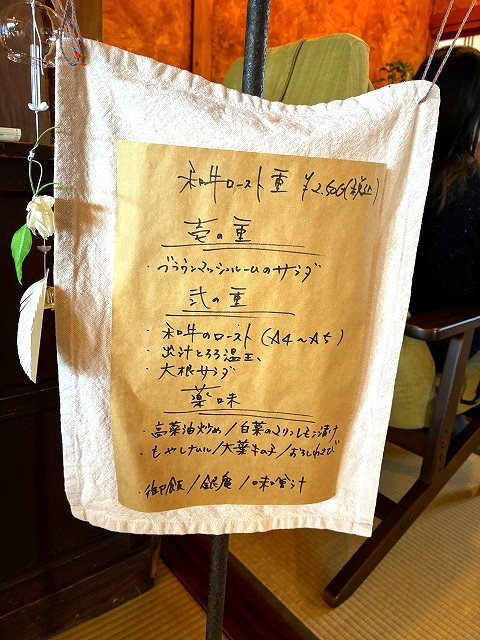 和牛ロースト重 ¥2,500(税込)
壱の重
・ブラウンマッシュルームのサラダ
弐の重
・和牛のロースト(A4〜A5)
・出汁とろろ温玉、
・大根サラダ
薬味
・高菜油炒め/白菜のマリンレモン漬け
・もやしナムル/大葉キムチ/おろしわさび
・御飯/銀庵/味噌汁